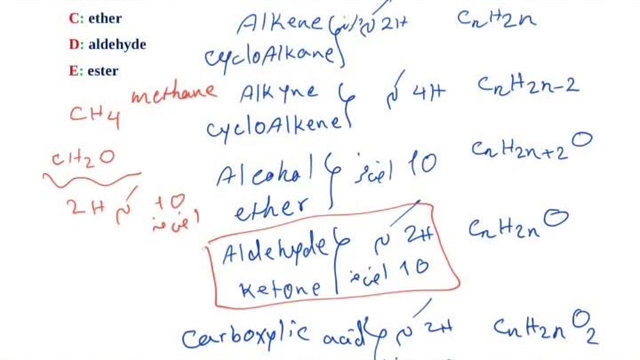 C: ether
D: aldehyde
E: ester
Alkene 2H CnH2n
cycloAlkane
methane
CH4
Alkyne 4H CnH2n-2
cycloAlkene
CH2O
2H 1O
Alcohol 1O CnH2n+2O
ether
Aldehyde 2H CnH2nO
Ketone 1O
carboxylic acid 2H CnH2nO2